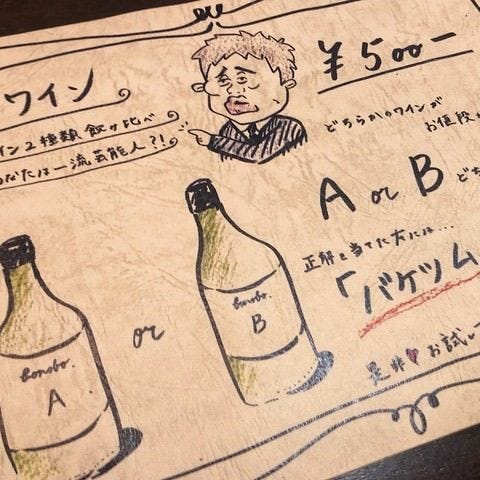 ワイン
イン2種類飲み比べ
なたは一流芸能人?!
¥500-
どちらかのワインが
お値段
A or B どち
正解を当てた方には…
「バケツム
是非♥お試し
or
bonobo.
A
bonobo.
B